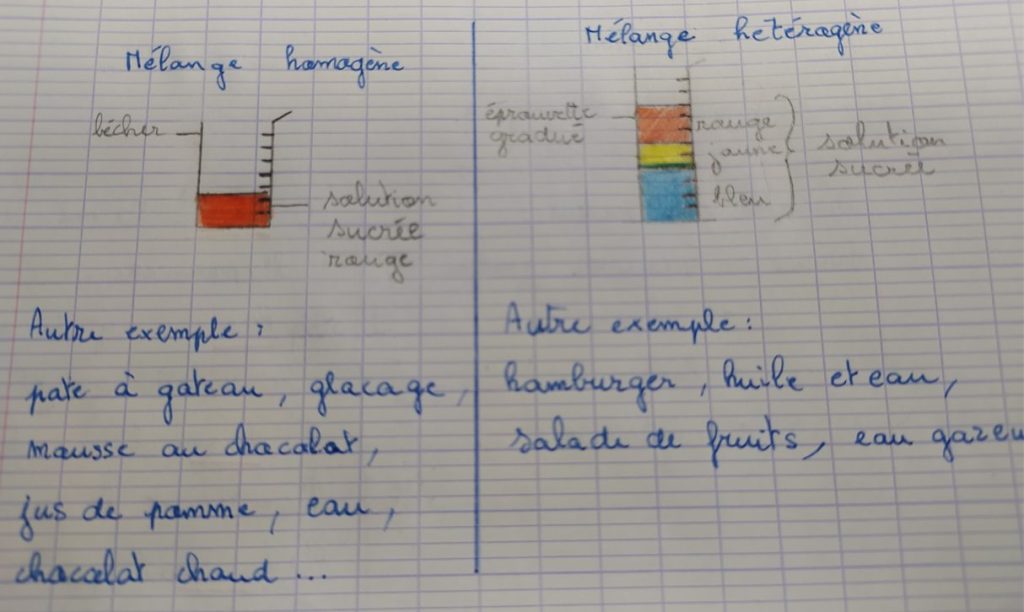 Mélange homogène
bécher
solution
sucrée
rouge
Autre exemple :
pate à gateau, glacage,
mousse au chocolat,
jus de pomme, eau,
chocolat chaud ...
Mélange hetérogène
éprouvette
gradué
rouge
jaune
bleu
solution
sucrée
Autre exemple :
hamburger, huile et eau,
salade de fruits, eau gazeu